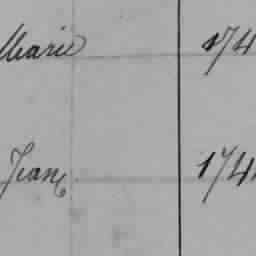 Marie 174
Jean 174